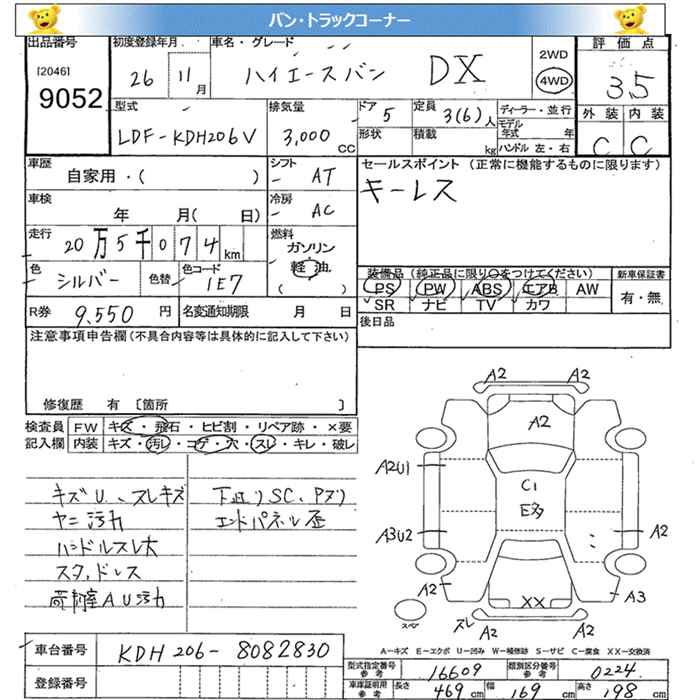 バン・トラックコーナー
出品番号
[2046]
9052
初度登録年月
26 11月
車名・グレード
ハイエースバン DX
2WD
4WD
評価点
3.5
外装 内装
C C
型式
LDF-KDH206V
排気量
3,000 CC
ドア 5
定員 3(6)人
形状
積載 kg
ディーラー・並行
モデル年式 年
ハンドル 左・右
車歴
自家用・( )
シフト
AT
車検
年 月( 日)
冷房
AC
走行
20万5千074km
燃料
ガソリン
軽油
( )
色
シルバー
色替
色コード
1E7
セールスポイント (正常に機能するものに限ります)
キーレス
装備品(純正品に限り○をつけてください)
PS PW ABS エアB AW
SR ナビ TV カワ
新車保証書
有・無
R券 9,550 円
名変通知期限 月 日
後日品
注意事項申告欄(不具合内容等は具体的に記入して下さい)
修復歴 有 〔箇所 〕
検査員記入欄
FW キズ・飛石・ヒビ割・リペア跡・×要
内装 キズ・汚レ・コゲ・穴・スレ・キレ・破レ
キズU、スレキズ
ヤニ汚れ
ハンドルスレ大
スタッドレス
荷室AU汚れ
下廻りSC、Pヌリ
エンドパネル歪
A2 A2
A2
A2U1
C1
E多
A3U2
A2
A2
A3
XX
スペア
スレ
A2 A2
A-キズ E-エクボ U-凹み W-補修跡 S-サビ C-腐食 XX-交換済
車台番号
KDH206-8082830
登録番号
型式指定番号参考 16609
類別区分番号参考 0224
車庫証明用参考
長さ 469cm
幅 169cm
高さ 198cm